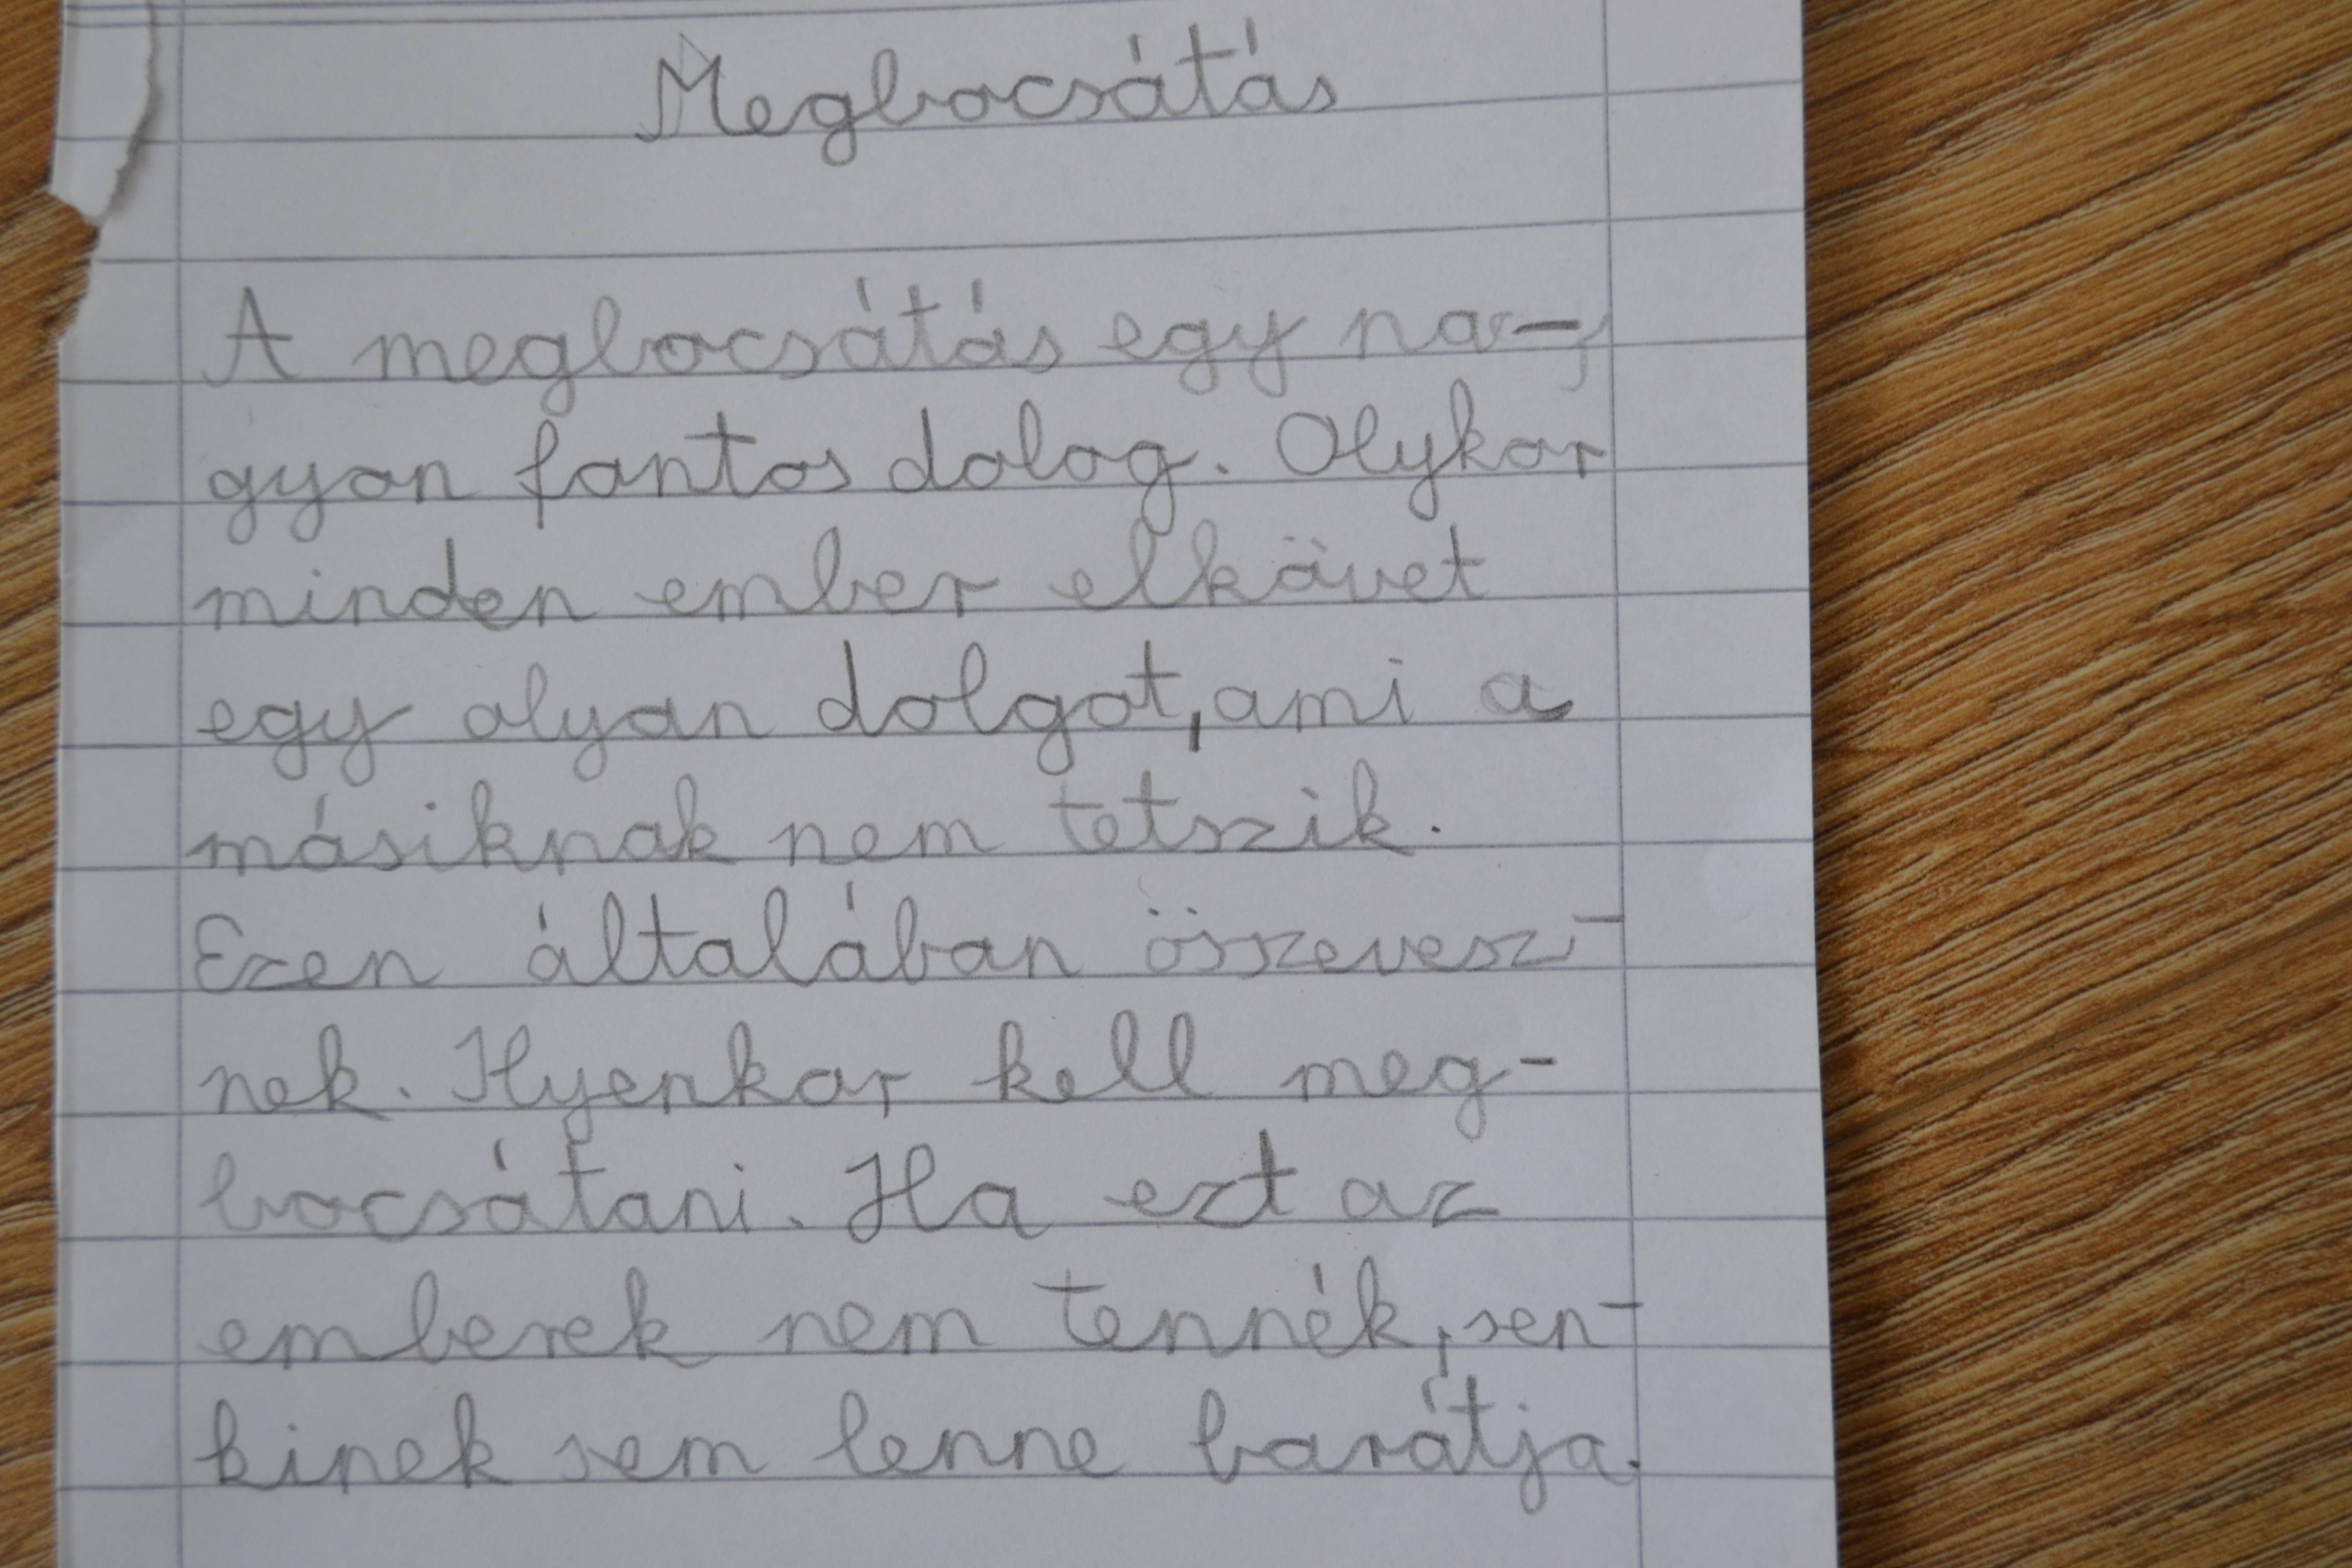 Megbocsátás
A megbocsátás egy na-
gyon fontos dolog. Olykor
minden ember elkövet
egy olyan dolgot, ami a
másiknak nem tetszik.
Ezen általában összevesz-
nek. Ilyenkor kell meg-
bocsátani. Ha ezt az
emberek nem tennék, sen-
kinek sem lenne barátja.